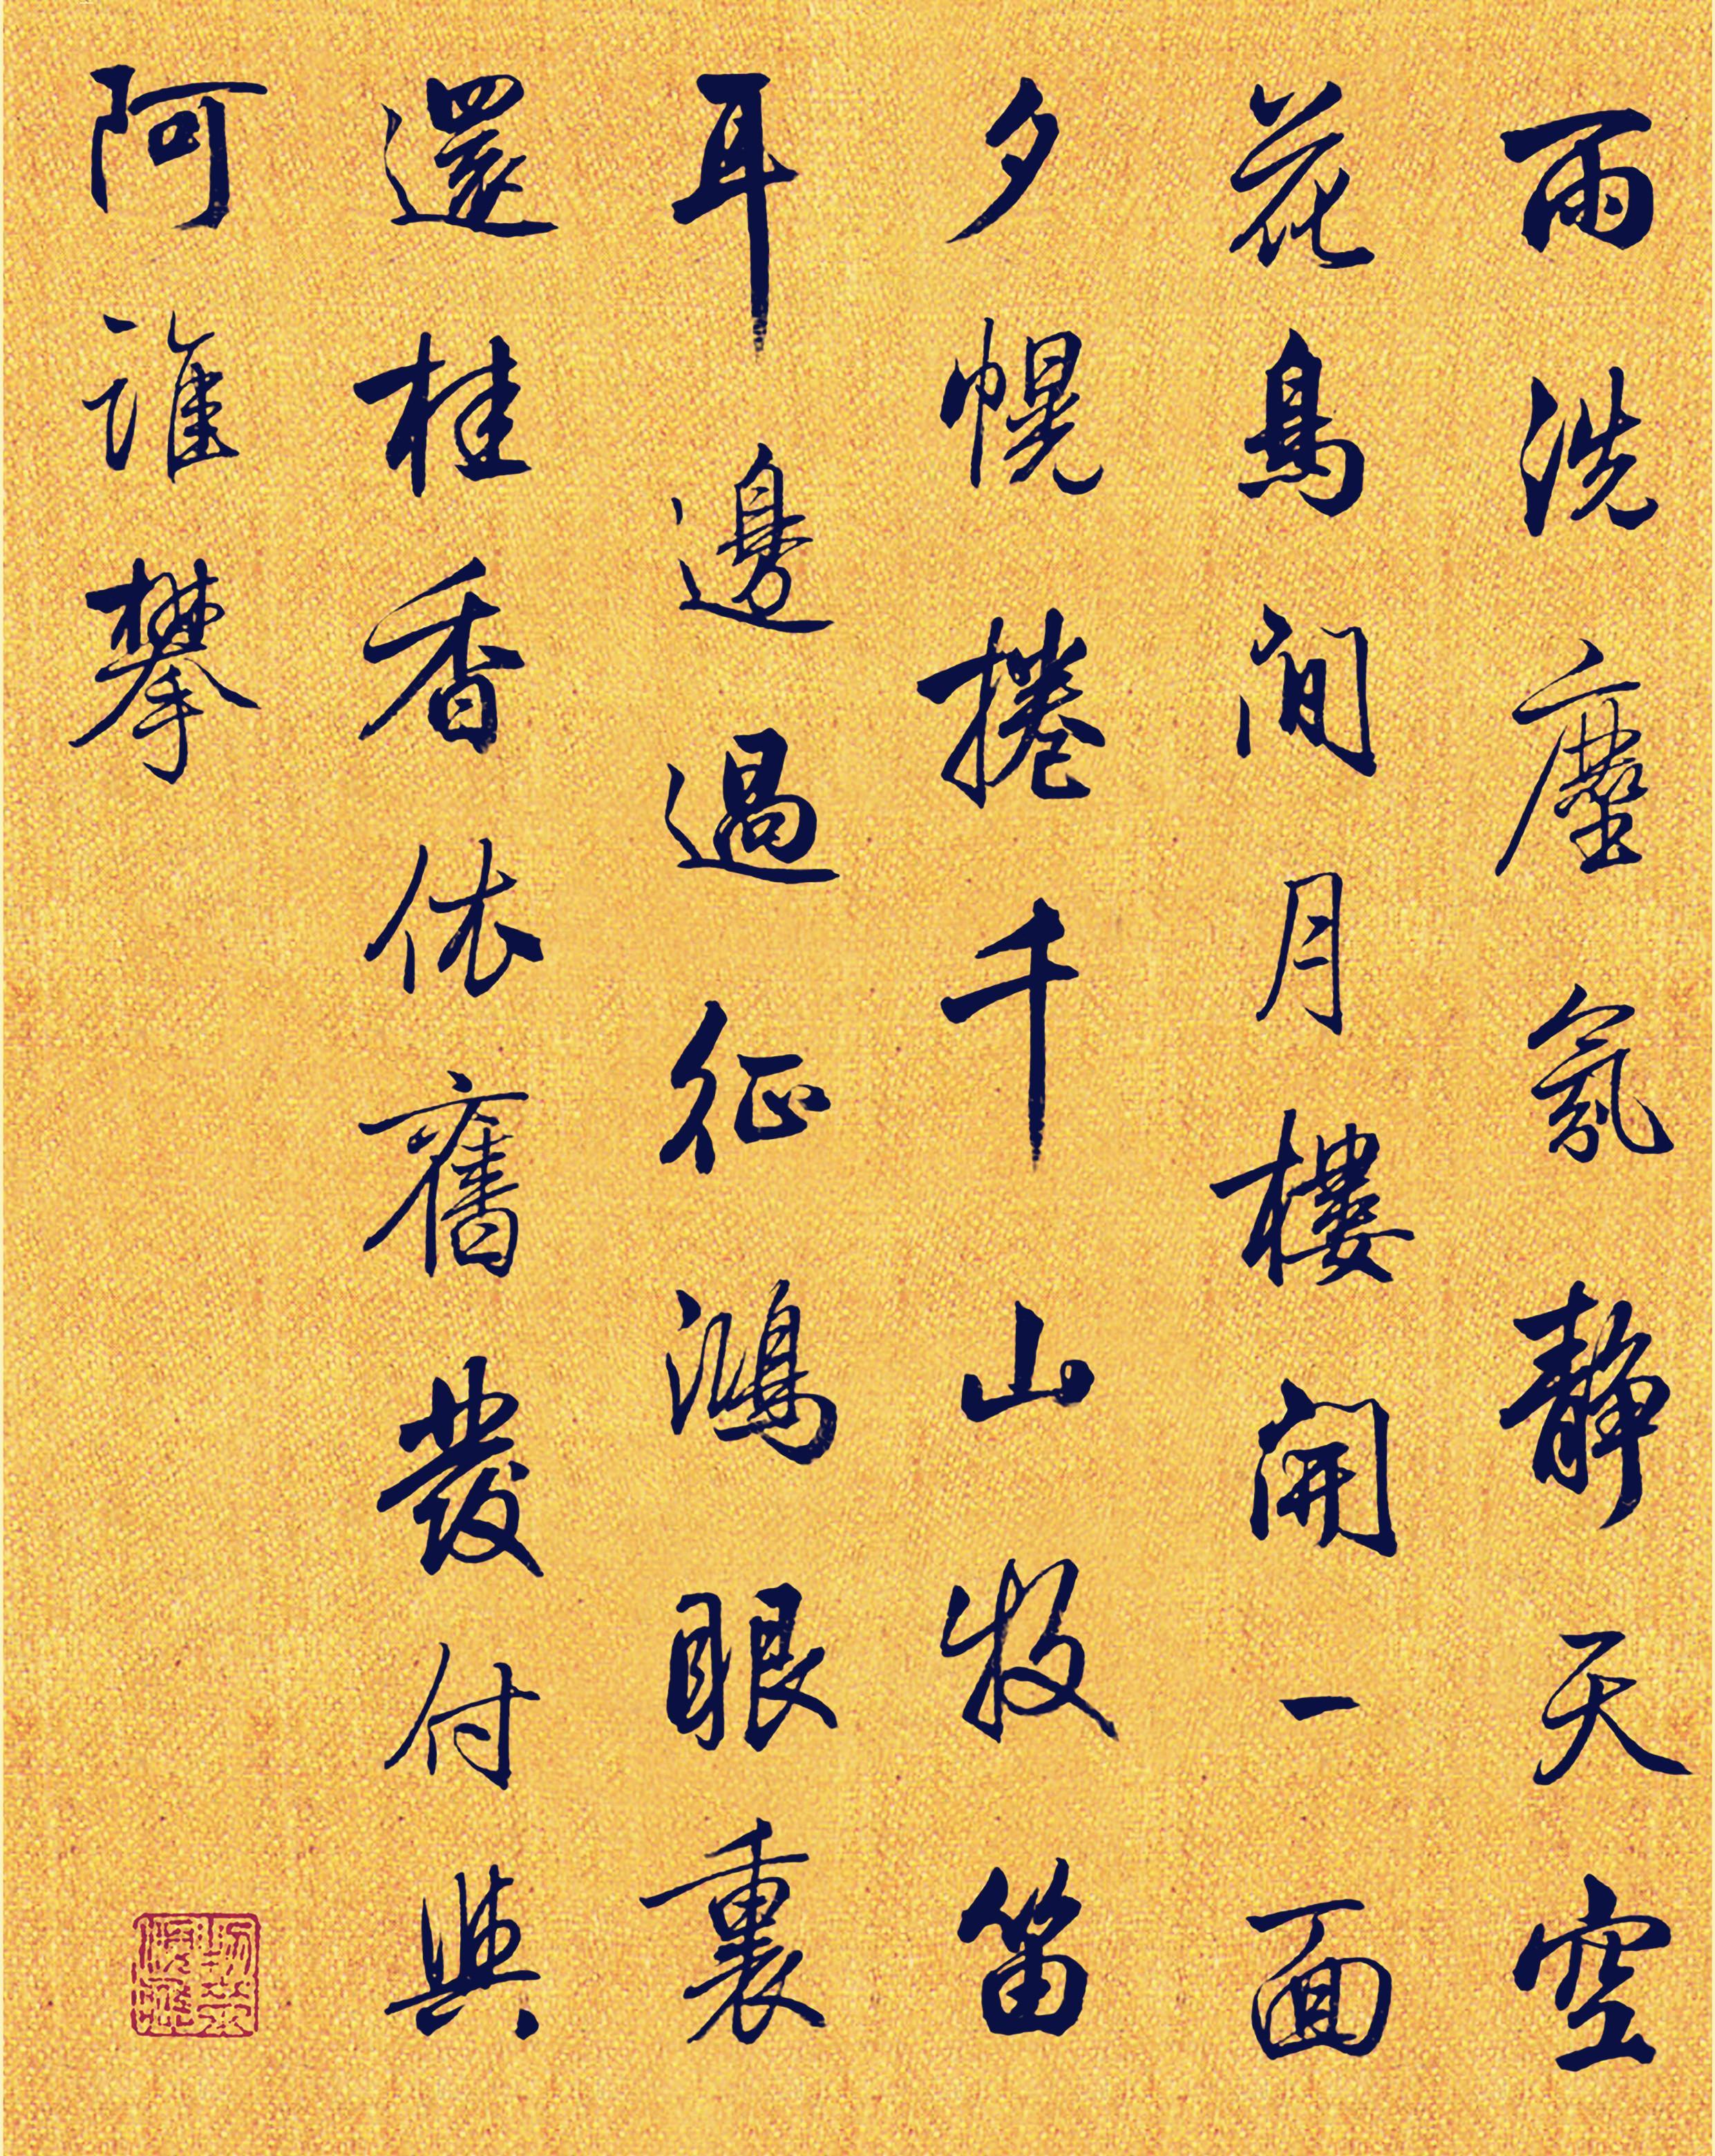 雨洗塵氛靜天空
花鳥閒月樓開一面
夕幌捲千山牧笛
耳邊過征鴻眼裏
還桂香依舊發付與
阿誰攀